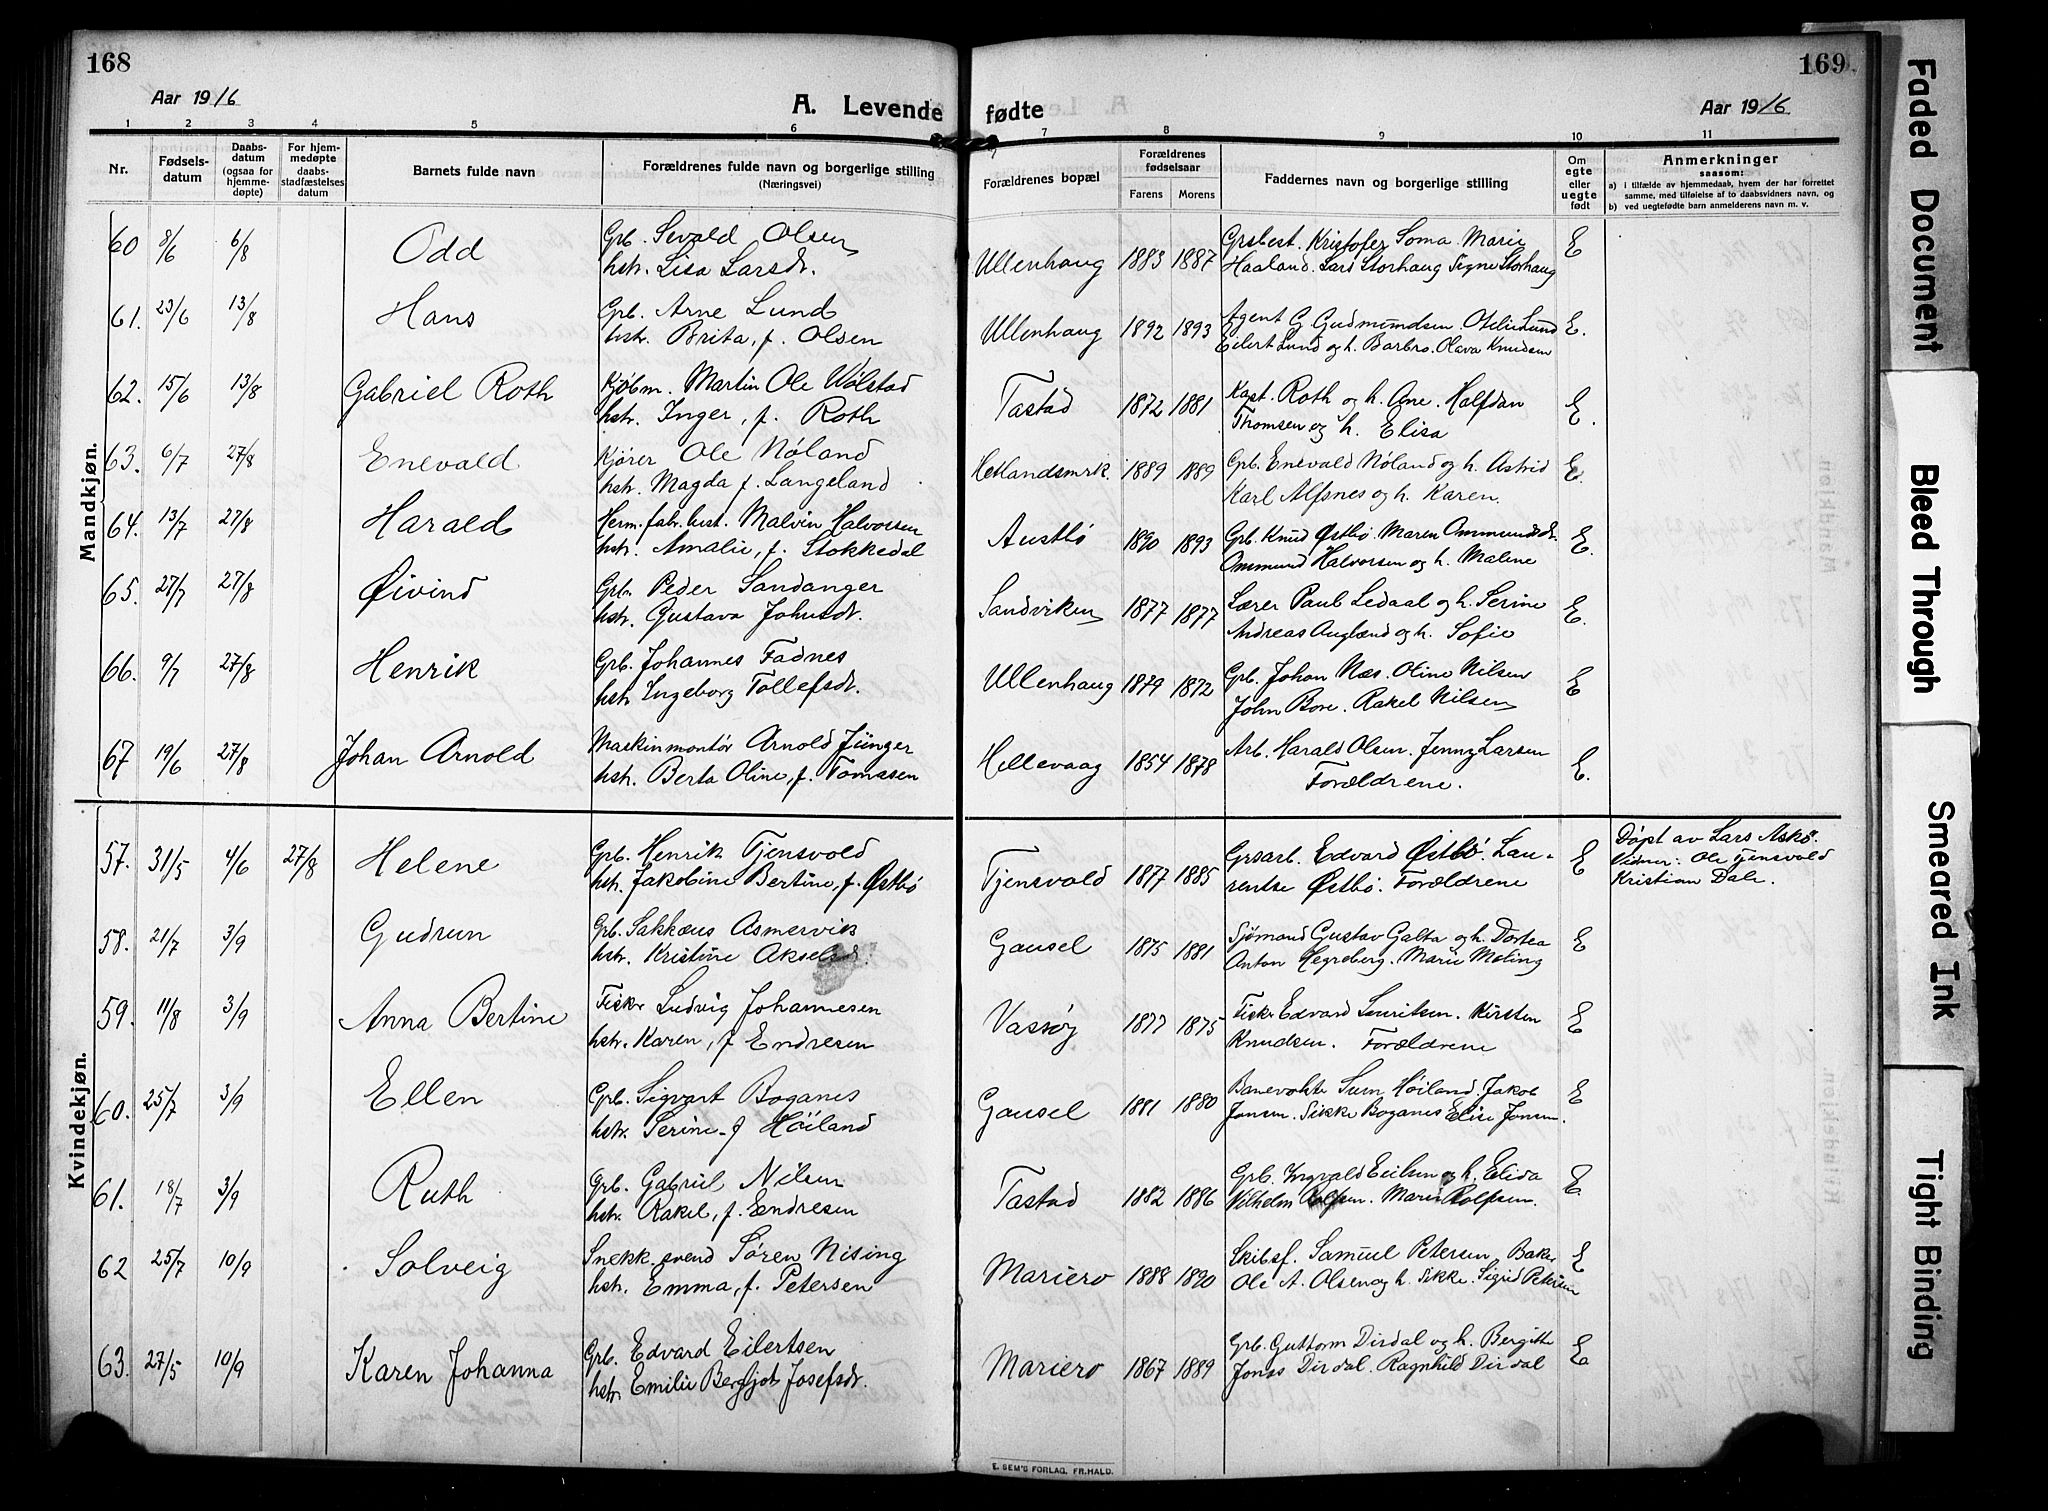 168
Aar 1916
A. Levende
1 2 3 4 5 6
Nr.
Fødsels-
datum
Daabs-
datum
(ogsaa for
hjemme-
døpte)
For hjem-
medøpte
daabs-
stadfæstelses
datum
Barnets fulde navn
Forældrenes fulde navn og borgerlige stilling
(Næringsvei)
Mandkjøn.
60 8/6 6/8 Odd Grb. Sevald Olsen
hstr. Lisa Larsdr.
61. 23/6 13/8 Hans Grb. Arne Lund
hstr. Brita, f. Olsen
62. 15/6 13/8 Gabriel Roth Kjøbm. Martin Ole Wølstad
hstr. Inger, f. Roth
63. 6/7 27/8 Enevald Kjører Ole Nøland
hstr. Magda f. Langeland
64. 13/7 27/8 Harald Herm. fabr. best. Malvin Halvorsen
hstr. Amalie, f. Stokkedal
65. 27/7 27/8 Øivind Grb. Peder Sandanger
hstr. Gustava Johnsdr.
66. 9/7 27/8 Henrik Grb. Johannes Fadnes
hstr. Ingeborg Tollefsdr.
67 19/6 27/8 Johan Arnold Maskinmontør Arnold Jünger
hstr. Berta Oline, f. Tomssen
Kvindekjøn.
57. 31/5 4/6 27/8 Helene Grb. Henrik Tjensvold
hstr. Jakobine Bertine, f. Østbø
58. 21/7 3/9 Gudrun Grb. Sakkæus Asmervik
hstr. Kristine Akselsdr.
59. 11/8 3/9 Anna Bertine Fisker Ludvig Johannesen
hstr. Karen, f Endresen
60. 25/7 3/9 Ellen Grb. Sigvart Boganes
hstr. Serine f Høiland
61. 18/7 3/9 Ruth Grb. Gabriel Nilsen
hstr. Rakel, f. Endresen
62 25/7 10/9 Solveig Snekk. svend Søren Nising
hstr. Emma, f. Petersen
63. 27/5 10/9 Karen Johanna Grb. Edvard Eilertsen
hstr. Emilie Bergljot Josefsdr.
169
fødte
Aar 1916
7 8 9 10 11
Forældrenes bopæl
Forældrenes
fødselsaar
Farens Morens
Faddernes navn og borgerlige stilling
Om
egte
eller
uegte
født
Anmerkninger
saasom:
a) i tilfælde av hjemmedaab, hvem der har forrettet
samme, med tilføielse af to daabsvidners navn, og
b) ved uegtefødte barn anmelderens navn m. v.
Ullenhaug 1883 1887 Grsbest. Kristofer Soma. Marie E
Haaland. Lars Storhaug Signe Storhaug
Ullenhaug 1892 1893 Agent G Gudmundsen. Otelie Lund E.
Eilert Lund og h. Barbro. Olava Knudsen
Tastad 1872 1881 Kapt. Roth og h. Ane. Halfdan E.
Thomsen og h. Elisa
Hetlandsmrk. 1889 1889 Grb. Enevald Nøland og h. Astrid E.
Karl Alfsnes og h. Karen.
Austbø 1890 1893 Grb. Knud Østbø. Maren Ommundsdr. E.
Ommund Halvorsen og h. Malene
Sandviken 1877 1877 Lærer Paul Ledaal og h. Serine E.
Andreas Auglænd og h. Sofie
Ullenhaug 1879 1872 Grb. Johan Næs. Oline Nilsen E
John Bore. Rakel Nilsen
Hellevaag 1854 1878 Arb. Harald Olsen. Jenny Larsen E.
Forældrene.
Tjensvold 1877 1885 Grsarb. Edvard Østbø. Lau- E Døpt av Lars Askø.
rentse Østbø. Forældrene Vidner: Ole Tjensvold
Kristian Dale.
Gausel 1875 1881 Sjømand Gustav Galta og h. Dortea E
Anton Hegreberg. Marie Moling
Vassøy 1877 1875 Fisker Edvard Lauritsen. Kirsten E
Knudsen. Forældrene
Gausel 1881 1880 Banevokte Sven Høiland. Jakob E
Jonsen. Sikke Boganes Elise Jonsen.
Tastad 1882 1886 Grb. Ingvald Eielsen og h. Elida E
Vilhelm Rolfsen. Marie Rolfsen.
Mariero 1888 1890 Skibsf. Samuel Petersen. Baker E
Ole A. Olsen og h. Sikke. Sigrid Petersen
Mariero 1867 1889 Grb. Guttorm Dirdal og h. Bergitte E
Jonas Dirdal. Ragnhild Dirdal
E. SEM'S FORLAG, FR.HALD.
Faded Document
Bleed Through
Smeared Ink
Tight Binding